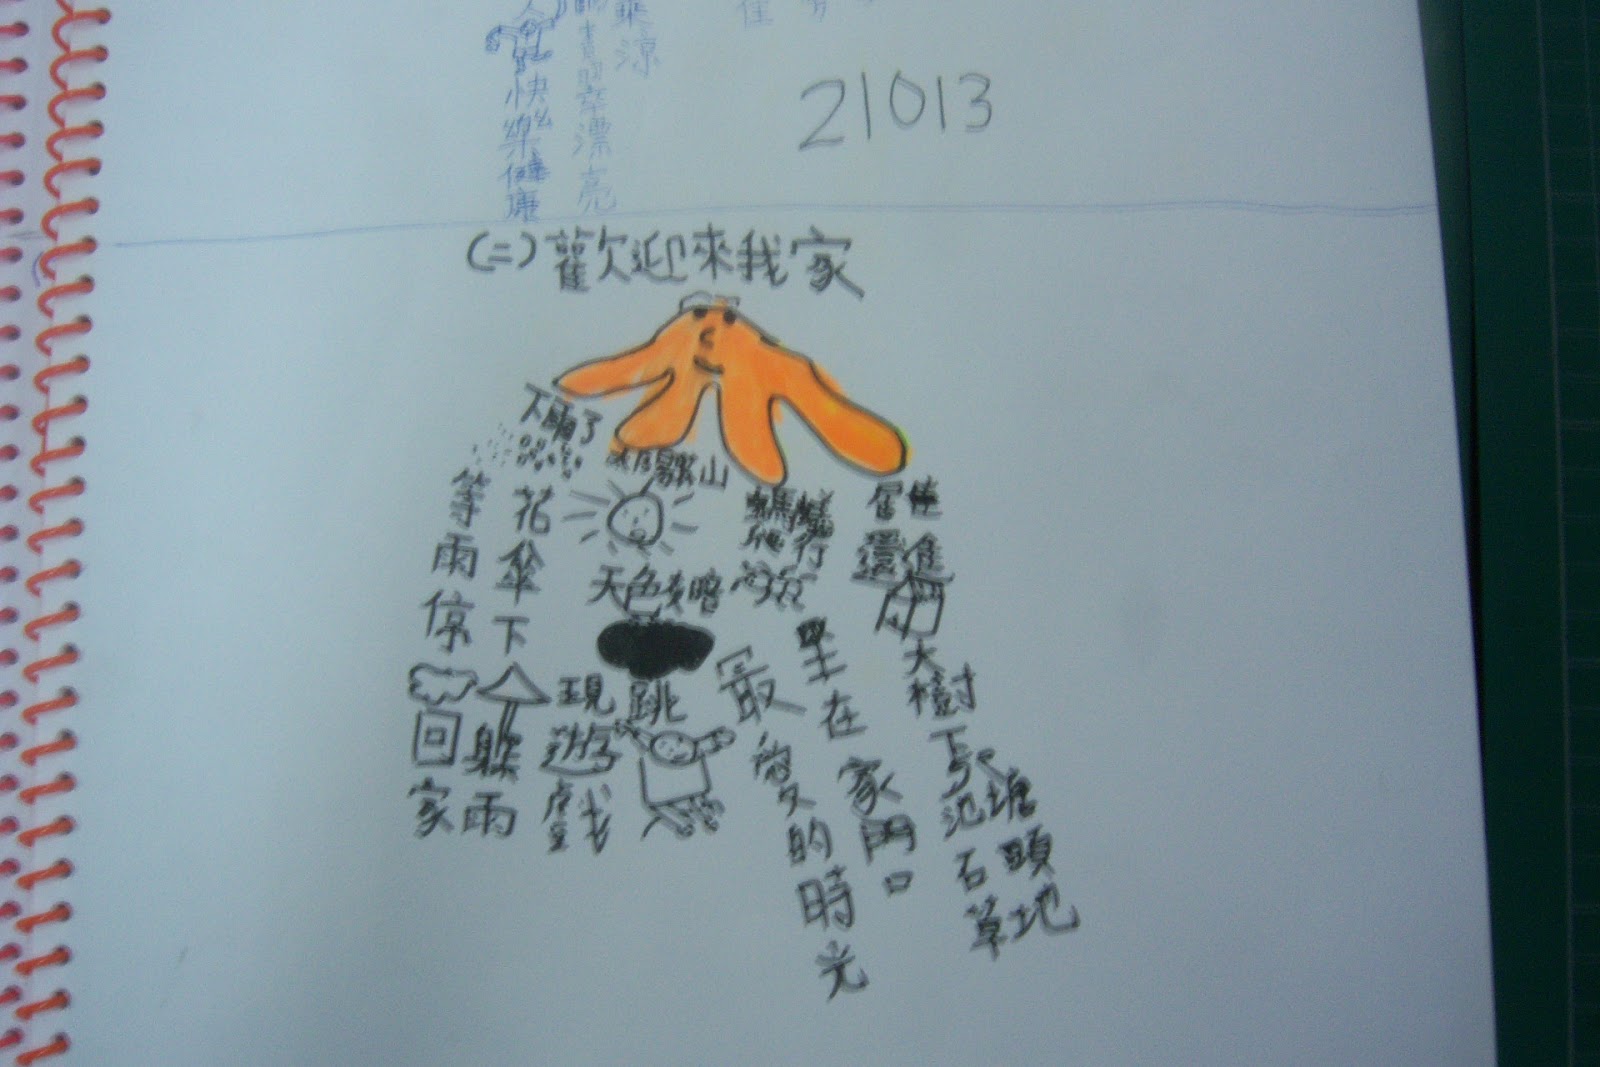 快樂健康
漂亮
涼
21013
(二)歡迎來我家
下雨了
花傘下
躲雨
等雨停
回家
太陽
山
天色
暗
跳
現
遊戲
螞蟻
爬行
坐在家門口
最愛的時光
還進
大樹下
池塘
石頭
草地